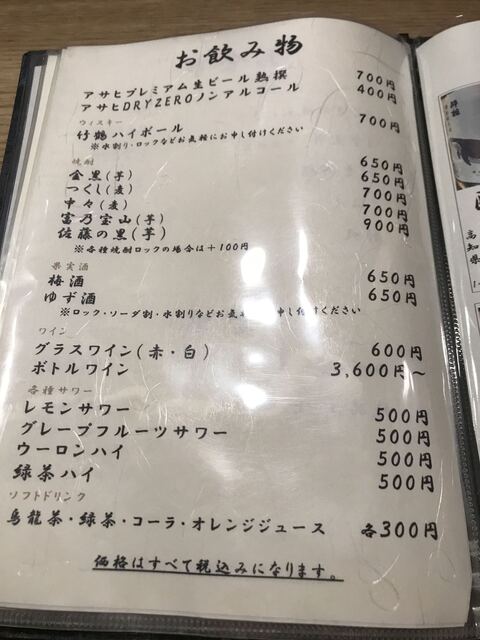 お飲み物
アサヒプレミアム生ビール熟撰 700円
アサヒDRYZEROノンアルコール 400円
ウィスキー
竹鶴ハイボール 700円
※水割り・ロックなどお気軽にお申し付けください
焼酎
金黒(芋) 650円
つくし(麦) 650円
中々(麦) 700円
富乃宝山(芋) 700円
佐藤の黒(芋) 900円
※各種焼酎ロックの場合は+100円
果実酒
梅酒 650円
ゆず酒 650円
※ロック・ソーダ割・水割りなどお気軽にお申し付けください
ワイン
グラスワイン(赤・白) 600円
ボトルワイン 3,600円~
各種サワー
レモンサワー 500円
グレープフルーツサワー 500円
ウーロンハイ 500円
緑茶ハイ 500円
ソフトドリンク
烏龍茶・緑茶・コーラ・オレンジジュース 各300円
価格はすべて税込みになります。
高知県